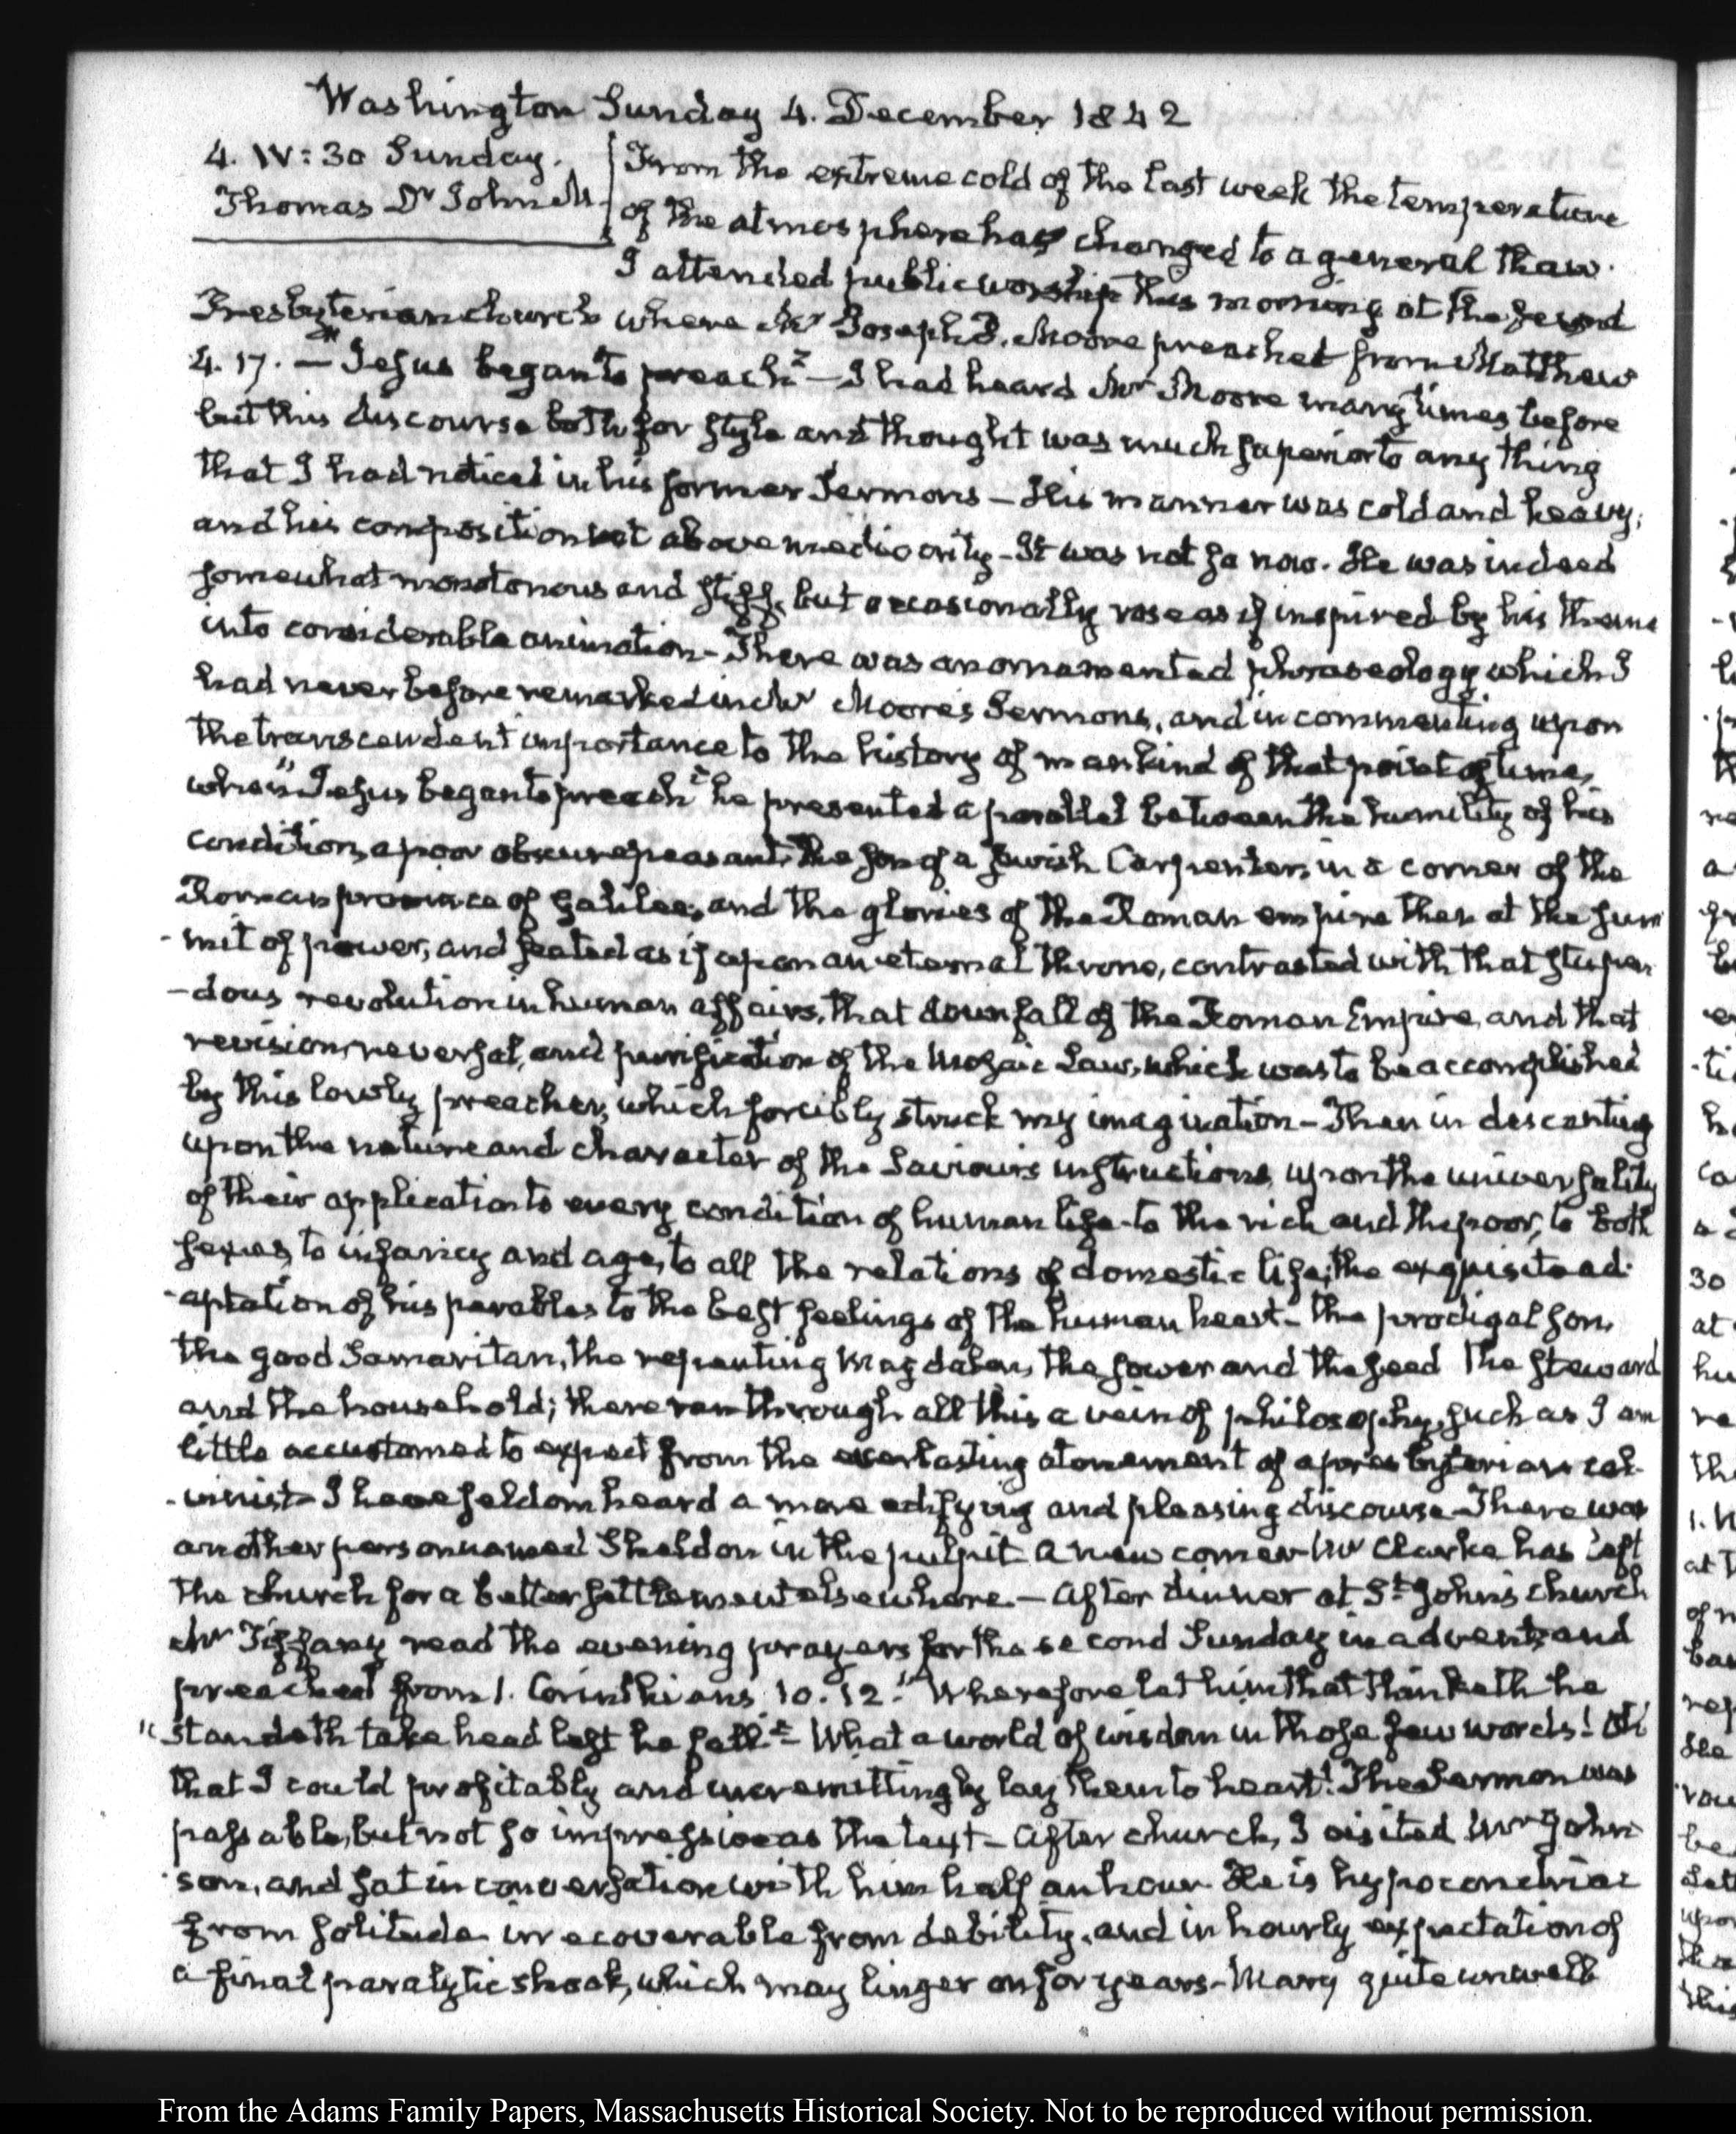 Washington Sunday 4. December 1842
4. IV: 30 Sunday.
Thomas Dr John M
From the extreme cold of the last week the temperature
of the atmosphere has changed to a general thaw.
I attended public worship this morning at the second
Presbyterian church where Mr Joseph Moore preached from Matthew
4. 17. — "Jesus began to preach" — I had heard Mr Moore many times before
but this discourse both for style and thought was much superior to any thing
that I had noticed in his former Sermons — His manner was cold and heavy;
and his composition not above mediocrity — It was not so now. He was indeed
somewhat monotonous and stiff, but occasionally rose as if inspired by his theme
into considerable animation — There was an ornamented phraseology which I
had never before remarked in Mr Moore's Sermons, and in commenting upon
the transcendent importance to the history of mankind of that point of time,
when "Jesus began to preach" he presented a parallel between the humility of his
condition, a poor obscure peasant, the son of a Jewish Carpenter, in a corner of the
Roman province of Galilee, and the glories of the Roman empire then at the sum
-mit of power, and seated as if upon an eternal throne, contrasted with that stupen
-dous revolution in human affairs, that downfall of the Roman Empire, and that
revision, reversal, and purification of the Mosaic Law, which was to be accomplished
by this lowly preacher, which forcibly struck my imagination — Then in descanting
upon the nature and character of the Saviour's instructions, upon the universality
of their application to every condition of human life — to the rich and the poor, to both
sexes, to infancy and age, to all the relations of domestic life; the exquisite ad-
-aptation of his parables to the best feelings of the human heart — the prodigal son,
the good Samaritan, the repenting Magdalen, the sower and the seed the steward
and the household; there ran through all this a vein of philosophy, such as I am
little accustomed to expect from the everlasting atonement of a presbyterian cal-
-vinist — I have seldom heard a more edifying and pleasing discourse — There was
another person named Sheldon in the pulpit a new comer — Mr Clarke has left
the church for a better settlement elsewhere. — After dinner at St John's church
Mr Tiffany read the evening prayers for the second Sunday in advent, and
preached from 1. Corinthians 10. 12. "Wherefore let him that thinketh he
"standeth take heed lest he fall" — What a world of wisdom in those few words! Oh!
that I could profitably and unremittingly lay them to heart! The Sermon was
passable, but not so impressive as the text — After church, I visited Mr John-
-son, and sat in conversation with him half an hour. He is hypocondriac
from solitude irrecoverable from debility, and in hourly expectation of
a final paralytic shock, which may linger on for years — Mary quite unwell
From the Adams Family Papers, Massachusetts Historical Society. Not to be reproduced without permission.